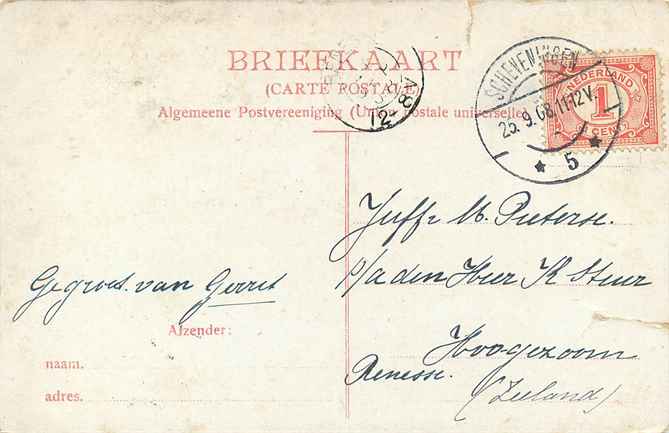 BRIEFKAART
(CARTE POSTALE)
Algemeene Postvereeniging (Union postale universelle)
SCHEVENINGEN
25.9.08.11-12V.
5
NEDERLAND
1
CENT
Juffr M. Pieterse.
p/a den Heer K Steur
Hoogezoom
Renesse.
(Zeeland)
Gegroet. van Gerret
Afzender:
naam.
adres.